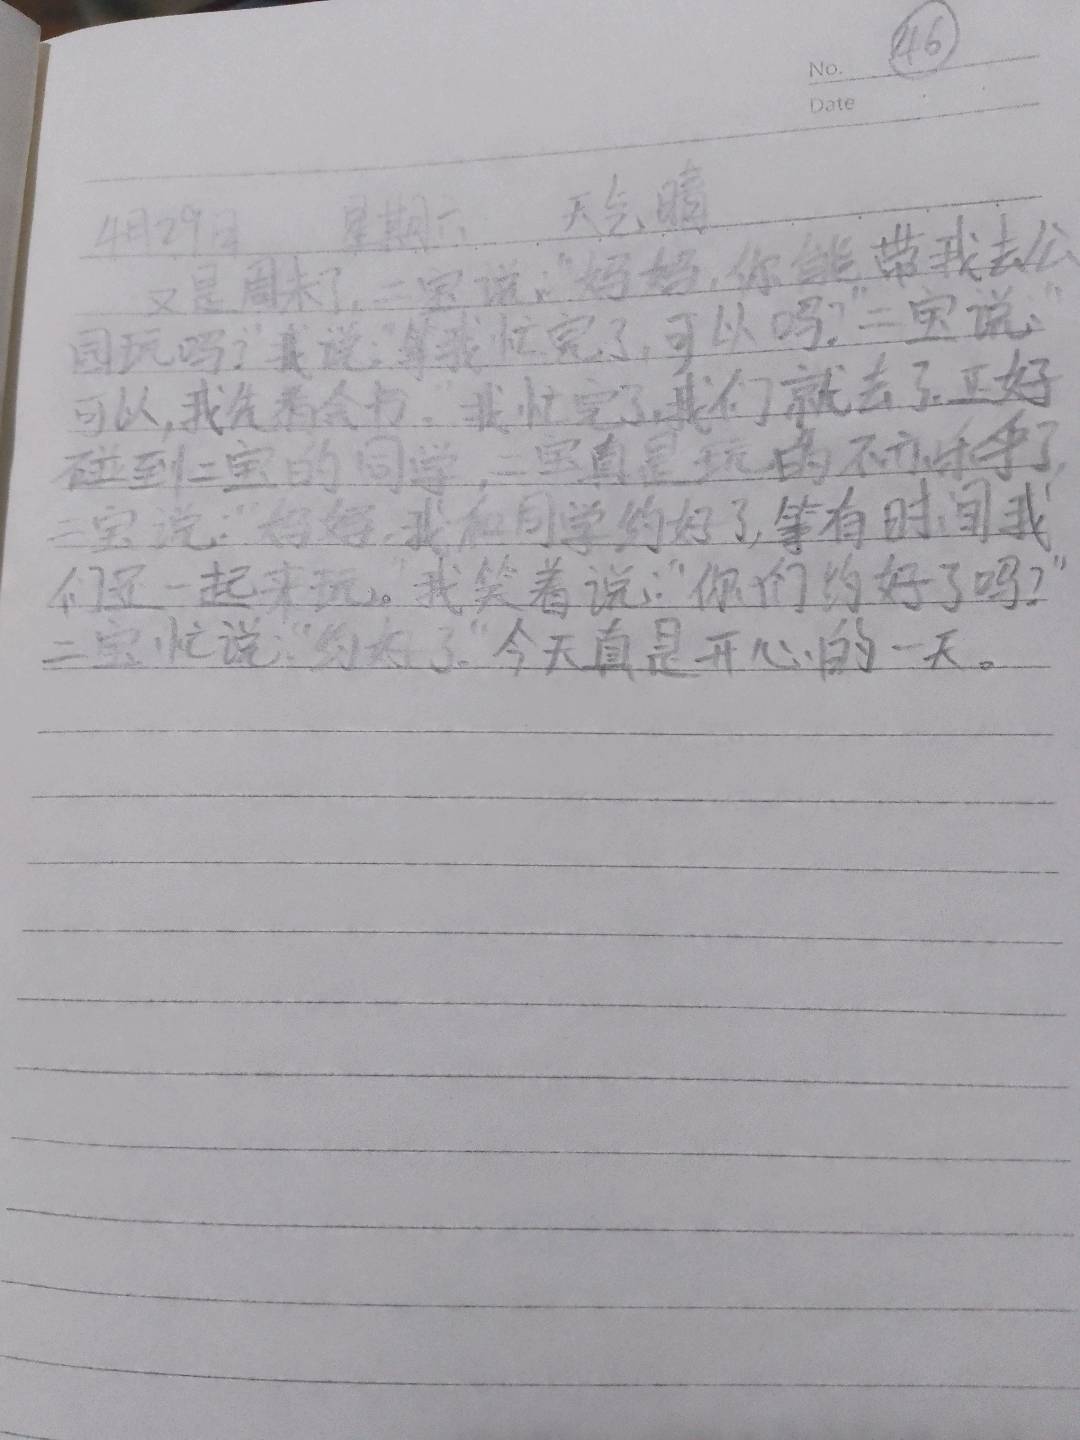 46
No.
Date
4月29日 星期六 天气晴
又是周末了,二宝说:"妈妈,你能带我去公
园玩吗?"我说:"等我忙完了,可以吗?"二宝说:"
可以,我先看会书。"我忙完了,我们就去了.正好
碰到二宝的同学,二宝真是玩的不亦乐乎了,
二宝说:"妈妈,我和同学约好了,等有时间我
们还一起来玩。"我笑着说:"你们约好了吗?"
二宝忙说:"约好了."今天真是开心的一天。